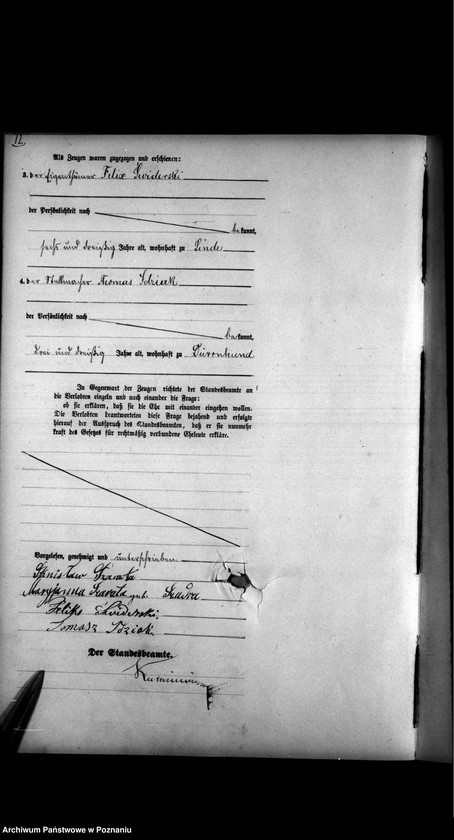 12
Als Zeugen waren zugezogen und erschienen:
3. der Eigenthümer Felix Swiderski
der Persönlichkeit nach
be kannt,
sechs und dreißig Jahre alt, wohnhaft zu Linde
4. der Stellmacher Thomas
der Persönlichkeit nach
be kannt,
drei und dreißig Jahre alt, wohnhaft zu
In Gegenwart der Zeugen richtete der Standesbeamte an
die Verlobten einzeln und nach einander die Frage:
ob sie erklären, daß sie die Ehe mit einander eingehen wollen.
Die Verlobten beantworteten diese Frage bejahend und erfolgte
hierauf der Ausspruch des Standesbeamten, daß er sie nunmehr
kraft des Gesetzes für rechtmäßig verbundene Eheleute erkläre.
Vorgelesen, genehmigt und unterschrieben
Stanisław Szarata
Maryjanna Szarata geb.
Feliks Świderski
Tomasz
Der Standesbeamte.
Archiwum Państwowe w Poznaniu